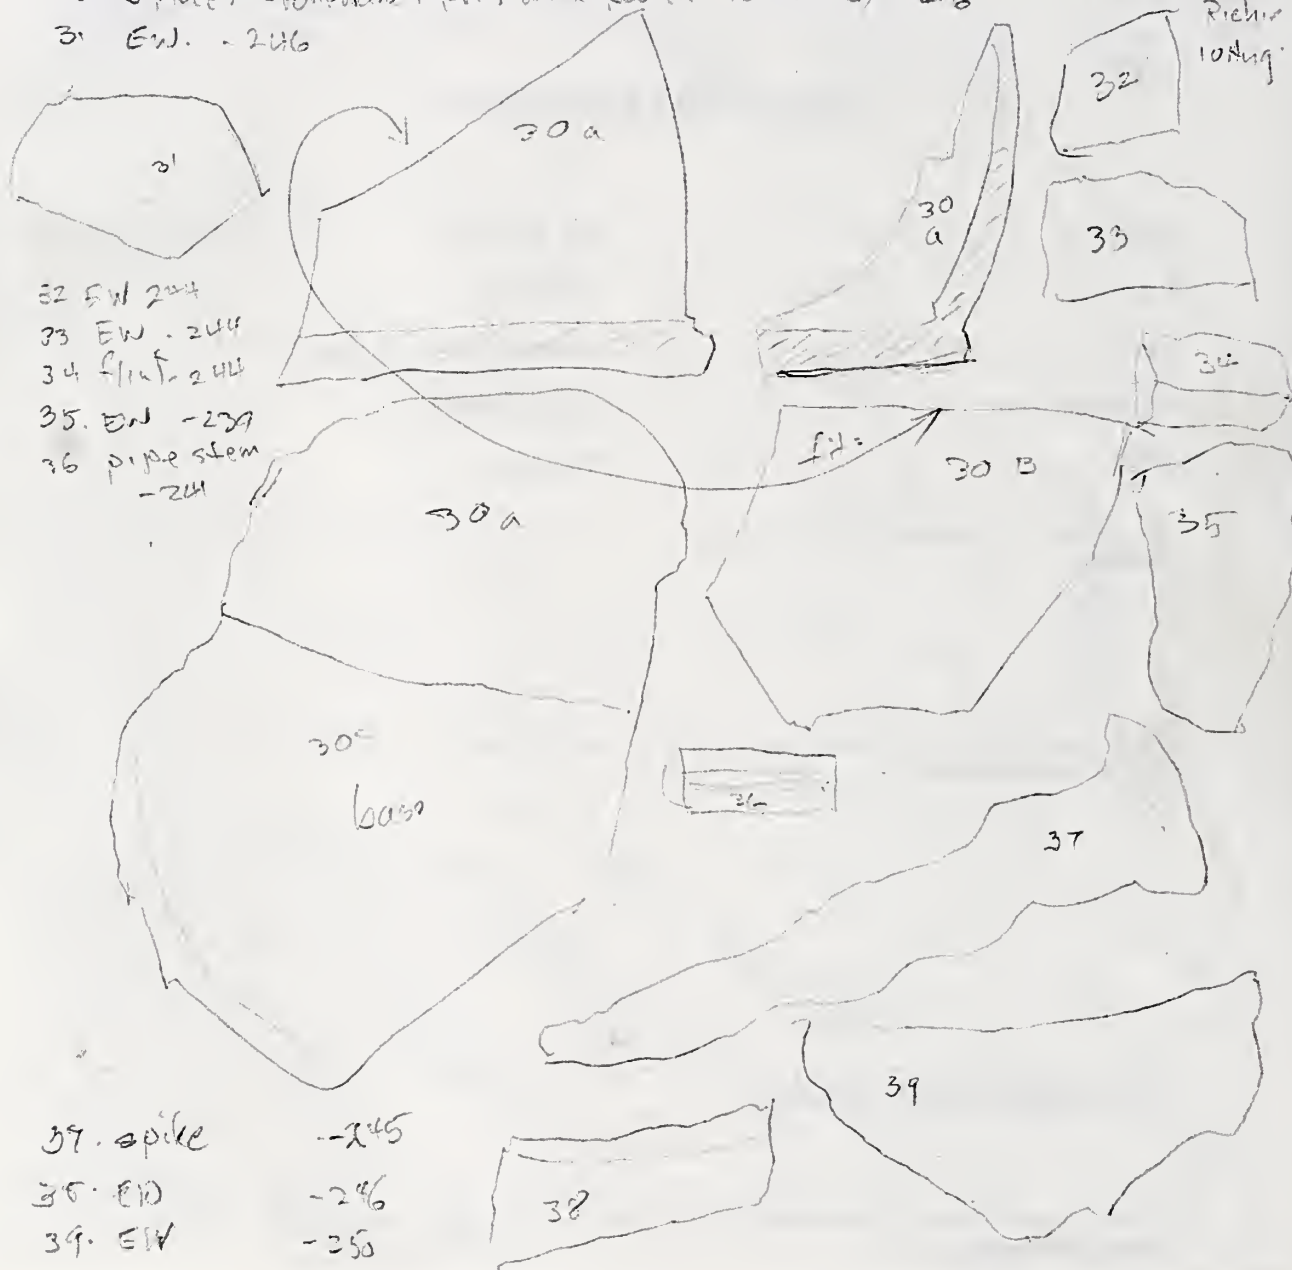 31 EW. - 246
10 Aug.
31
30 a
30
a
32
33
32 EW 244
33 EW. 244
34 flint - 244
35. EW - 239
36 pipe stem
- 241
34
fits
30 B
35
30 a
30c
base
36
37
39
38
37. spike --245
38. EW -246
39. EW -250